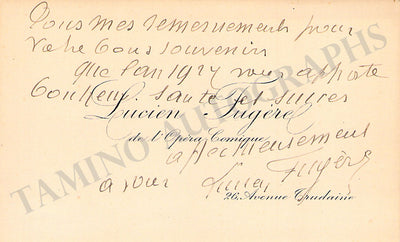 Tous mes remerciements pour
votre bon souvenir
Que l'an 1927 vous apporte
bonheur santé et
Lucien Fugère
de l'Opéra Comique
affectueusement
à vous Lucien Fugère
26, Avenue Trudaine
TAMINO AUTOGRAPHS